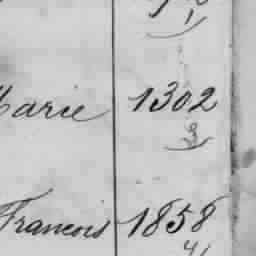 Marie 1302
3
Francois 1858
41